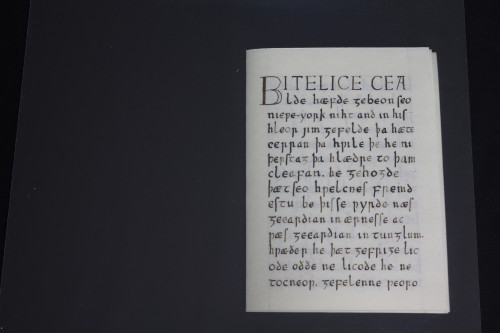 BITELICE CEA
lde hæfde ᵹebeon seo
nieƿe-york niht and in his
hleor jim ᵹefelde þa hæte
cerran þa hƿile þe he ni
þerstaᵹ þa hlædre to þam
cleafan. he ᵹehoᵹde
þæt seo hƿelcnes fremd
estu be þisse ƿyrde næs
ᵹeeardian in ærnesse ac
ƿæs ᵹeeardian in tunᵹlum.
hƿæder he þæt ᵹefriᵹe lic
ode odde ne licode he ne
tocneoƿ. ᵹefelenne ƿeoro